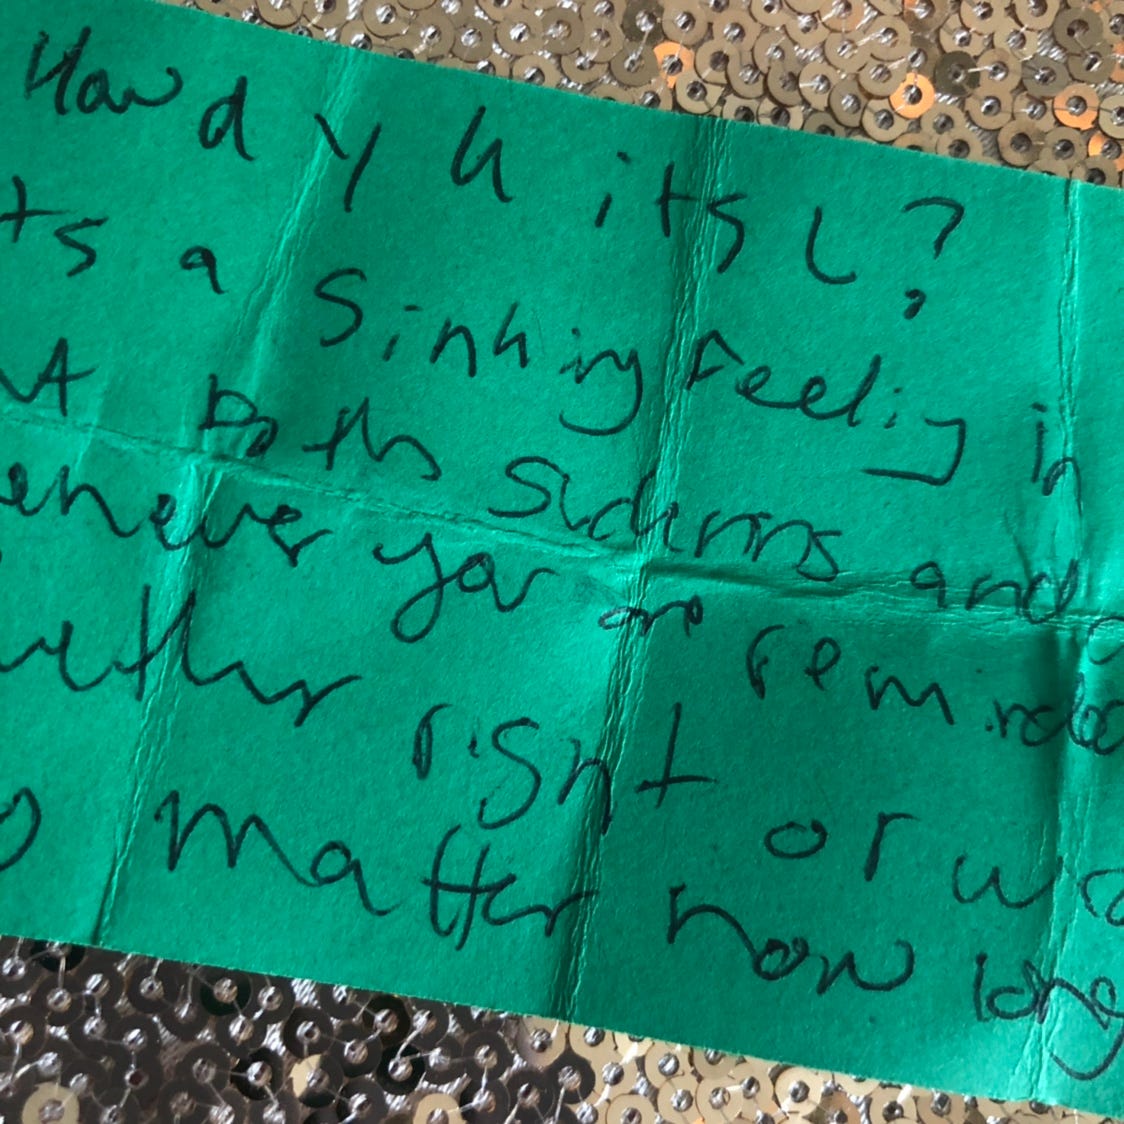 How d y k its L?
ts a sinking feeling in
at both and
enever you are reminded
wether right or w
o matter how long